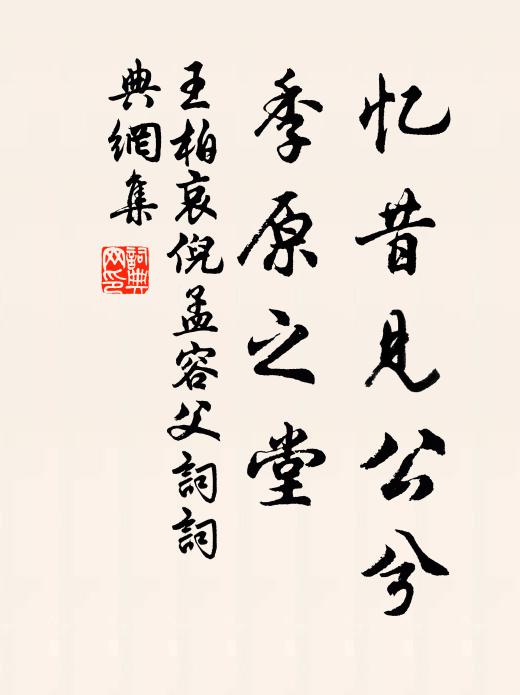 忆昔见公兮
季原之堂
王柏哀倪孟容父詞詞
典網集
詞典網印